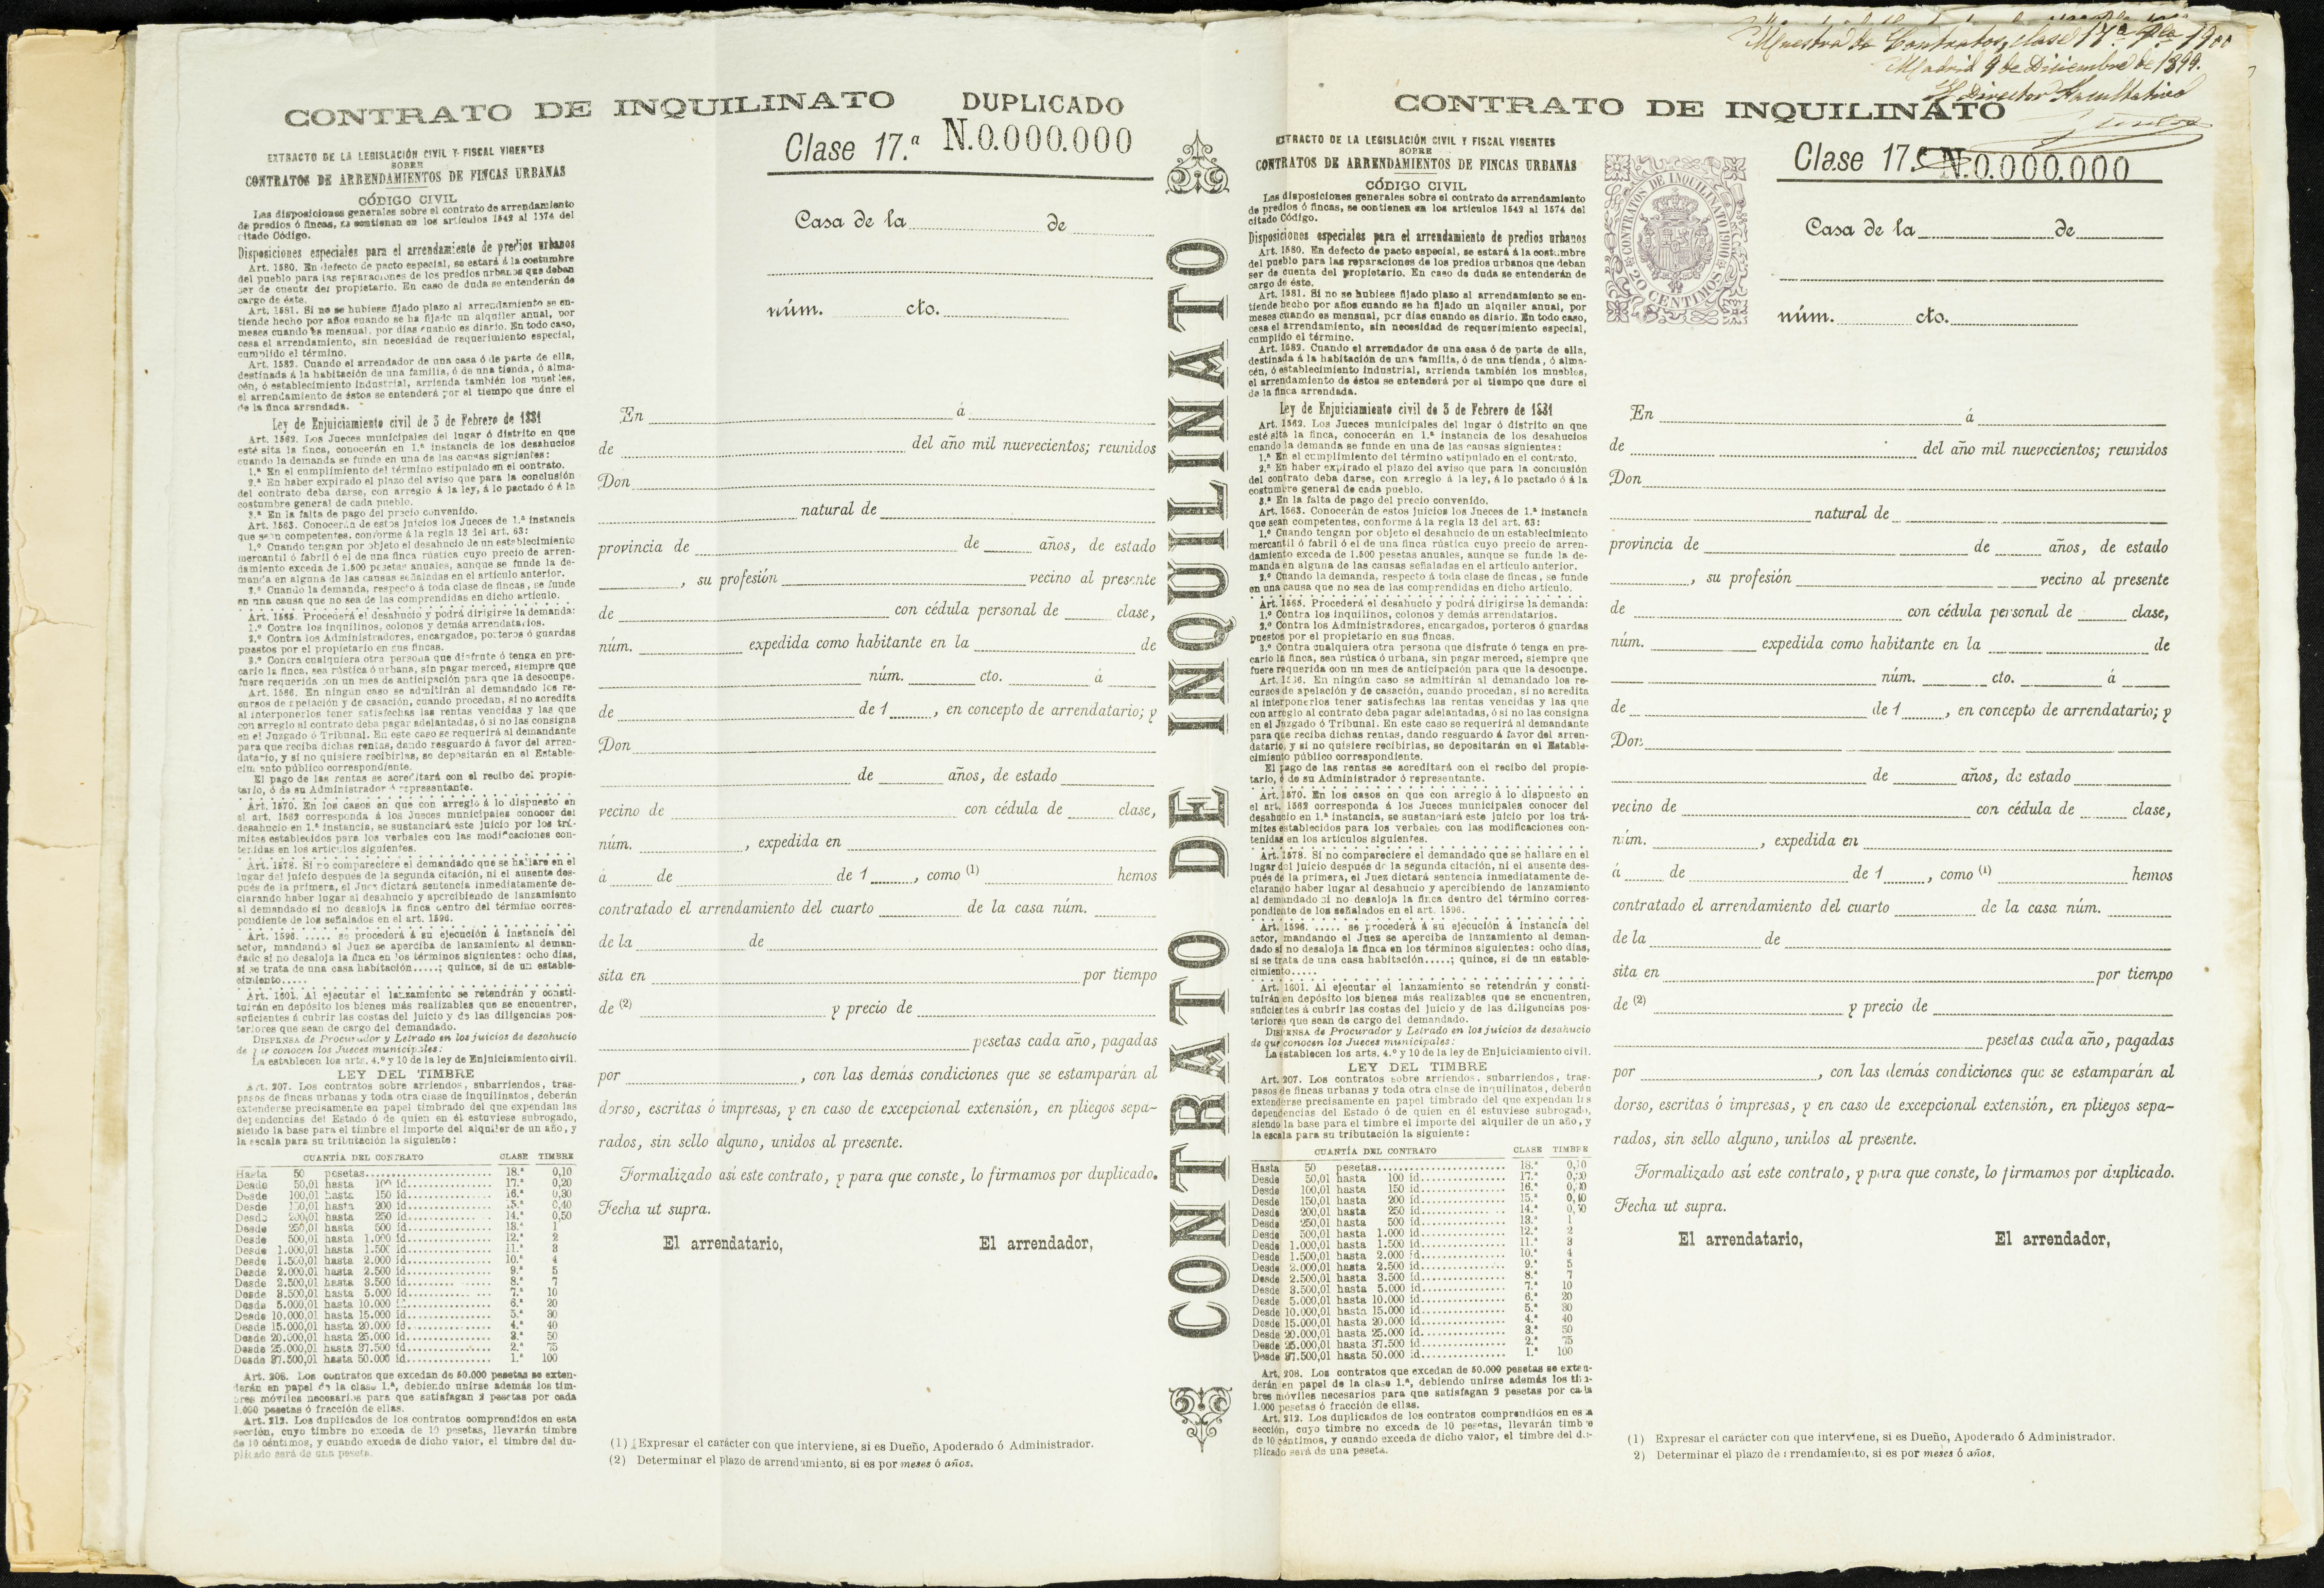 CONTRATO DE INQUILINATO
DUPLICADO
Clase 17.ª N.0.000.000
EXTRACTO DE LA LEGISLACIÓN CIVIL Y FISCAL VIGENTES
SOBRE
CONTRATOS DE ARRENDAMIENTOS DE FINCAS URBANAS
CÓDIGO CIVIL
Las disposiciones generales sobre el contrato de arrendamiento
de predios ó fincas, se contienen en los artículos 1542 al 1574 del
citado Código.
Disposiciones especiales para el arrendamiento de predios urbanos
Art. 1580. En defecto de pacto especial, se estará á la costumbre
del pueblo para las reparaciones de los predios urbanos que deban
ser de cuenta del propietario. En caso de duda se entenderán de
cargo de éste.
Art. 1581. Si no se hubiese fijado plazo al arrendamiento se en-
tiende hecho por años cuando se ha fijado un alquiler anual, por
meses cuando es mensual, por días cuando es diario. En todo caso,
cesa el arrendamiento, sin necesidad de requerimiento especial,
cumplido el término.
Art. 1582. Cuando el arrendador de una casa ó de parte de ella,
destinada á la habitación de una familia, ó de una tienda, ó alma-
cén, ó establecimiento industrial, arrienda también los muebles,
el arrendamiento de éstos se entenderá por el tiempo que dure el
de la finca arrendada.
Ley de Enjuiciamiento civil de 3 de Febrero de 1881
Art. 1562. Los Jueces municipales del lugar ó distrito en que
esté sita la finca, conocerán en 1.ª instancia de los desahucios
cuando la demanda se funde en una de las causas siguientes:
1.ª En el cumplimiento del término estipulado en el contrato.
2.ª En haber expirado el plazo del aviso que para la conclusión
del contrato deba darse, con arreglo á la ley, á lo pactado ó á la
costumbre general de cada pueblo.
3.ª En la falta de pago del precio convenido.
Art. 1563. Conocerán de estos juicios los Jueces de 1.ª instancia
que sean competentes, conforme á la regla 13 del art. 63:
1.º Cuando tengan por objeto el desahucio de un establecimiento
mercantil ó fabril ó el de una finca rústica cuyo precio de arren-
damiento exceda de 1.500 pesetas anuales, aunque se funde la de-
manda en alguna de las causas señaladas en el artículo anterior.
2.º Cuando la demanda, respecto á toda clase de fincas, se funde
en una causa que no sea de las comprendidas en dicho artículo.
Art. 1565. Procederá el desahucio y podrá dirigirse la demanda:
1.º Contra los inquilinos, colonos y demás arrendatarios.
2.º Contra los Administradores, encargados, porteros ó guardas
puestos por el propietario en sus fincas.
3.º Contra cualquiera otra persona que disfrute ó tenga en pre-
cario la finca, sea rústica ó urbana, sin pagar merced, siempre que
fuere requerida con un mes de anticipación para que la desocupe.
Art. 1566. En ningún caso se admitirán al demandado los re-
cursos de apelación y de casación, cuando procedan, si no acredita
al interponerlos tener satisfechas las rentas vencidas y las que
con arreglo al contrato deba pagar adelantadas, ó si no las consigna
en el Juzgado ó Tribunal. En este caso se requerirá al demandante
para que reciba dichas rentas, dando resguardo á favor del arren-
datario, y si no quisiere recibirlas, se depositarán en el Estable-
cimiento público correspondiente.
El pago de las rentas se acreditará con el recibo del propie-
tario, ó de su Administrador ó representante.
Art. 1570. En los casos en que con arreglo á lo dispuesto en
el art. 1562 corresponda á los Jueces municipales conocer del
desahucio en 1.ª instancia, se sustanciará este juicio por los trá-
mites establecidos para los verbales con las modificaciones con-
tenidas en los artículos siguientes.
Art. 1578. Si no compareciere el demandado que se hallare en el
lugar del juicio después de la segunda citación, ni el ausente des-
pués de la primera, el Juez dictará sentencia inmediatamente de-
clarando haber lugar al desahucio y apercibiendo de lanzamiento
al demandado si no desaloja la finca dentro del término corres-
pondiente de los señalados en el art. 1596.
Art. 1596. ..... se procederá á su ejecución á instancia del
actor, mandando el Juez se aperciba de lanzamiento al deman-
dado si no desaloja la finca en los términos siguientes: ocho días,
si se trata de una casa habitación.....; quince, si de un estable-
cimiento.....
Art. 1601. Al ejecutar el lanzamiento se retendrán y consti-
tuirán en depósito los bienes más realizables que se encuentren,
suficientes á cubrir las costas del juicio y de las diligencias pos-
teriores que sean de cargo del demandado.
DISPENSA de Procurador y Letrado en los juicios de desahucio
de que conocen los Jueces municipales:
La establecen los arts. 4.º y 10 de la ley de Enjuiciamiento civil.
LEY DEL TIMBRE
Art. 207. Los contratos sobre arriendos, subarriendos, tras-
pasos de fincas urbanas y toda otra clase de inquilinatos, deberán
extenderse precisamente en papel timbrado del que expendan las
dependencias del Estado ó de quien en él estuviese subrogado,
siendo la base para el timbre el importe del alquiler de un año, y
la escala para su tributación la siguiente:
CUANTÍA DEL CONTRATO CLASE TIMBRE
Hasta 50 pesetas 18.ª 0,10
Desde 50,01 hasta 100 íd. 17.ª 0,20
Desde 100,01 hasta 150 íd. 16.ª 0,30
Desde 150,01 hasta 200 íd. 15.ª 0,40
Desde 200,01 hasta 250 íd. 14.ª 0,50
Desde 250,01 hasta 500 íd. 13.ª 1
Desde 500,01 hasta 1.000 íd. 12.ª 2
Desde 1.000,01 hasta 1.500 íd. 11.ª 3
Desde 1.500,01 hasta 2.000 íd. 10.ª 4
Desde 2.000,01 hasta 2.500 íd. 9.ª 5
Desde 2.500,01 hasta 3.500 íd. 8.ª 7
Desde 3.500,01 hasta 5.000 íd. 7.ª 10
Desde 5.000,01 hasta 10.000 íd. 6.ª 20
Desde 10.000,01 hasta 15.000 íd. 5.ª 30
Desde 15.000,01 hasta 20.000 íd. 4.ª 40
Desde 20.000,01 hasta 25.000 íd. 3.ª 50
Desde 25.000,01 hasta 37.500 íd. 2.ª 75
Desde 37.500,01 hasta 50.000 íd. 1.ª 100
Art. 208. Los contratos que excedan de 50.000 pesetas se exten-
derán en papel de la clase 1.ª, debiendo unirse además los tim-
bres móviles necesarios para que satisfagan 2 pesetas por cada
1.000 pesetas ó fracción de ellas.
Art. 212. Los duplicados de los contratos comprendidos en esta
sección, cuyo timbre no exceda de 10 pesetas, llevarán timbre
de 10 céntimos, y cuando exceda de dicho valor, el timbre del du-
plicado será de una peseta.
Casa de la de
núm. cto.
En á
de del año mil nuevecientos; reunidos
Don
natural de
provincia de de años, de estado
, su profesión vecino al presente
de con cédula personal de clase,
núm. expedida como habitante en la de
núm. cto. á
de de 1 , en concepto de arrendatario; y
Don
de años, de estado
vecino de con cédula de clase,
núm. , expedida en
á de de 1 , como (1) hemos
contratado el arrendamiento del cuarto de la casa núm.
de la de
sita en por tiempo
de (2) y precio de
pesetas cada año, pagadas
por , con las demás condiciones que se estamparán al
dorso, escritas ó impresas, y en caso de excepcional extensión, en pliegos sepa-
rados, sin sello alguno, unidos al presente.
Formalizado así este contrato, y para que conste, lo firmamos por duplicado.
Fecha ut supra.
El arrendatario, El arrendador,
(1) Expresar el carácter con que interviene, si es Dueño, Apoderado ó Administrador.
(2) Determinar el plazo de arrendamiento, si es por meses ó años.
CONTRATO DE INQUILINATO
Muestra de Contratos, clase 17ª 1900
Madrid 9 de Diciembre de 1899.
El Director Facultativo
CONTRATO DE INQUILINATO
Clase 17.ª N.0.000.000
CONTRATOS DE INQUILINATO 1900
20 CENTIMOS
EXTRACTO DE LA LEGISLACIÓN CIVIL Y FISCAL VIGENTES
SOBRE
CONTRATOS DE ARRENDAMIENTOS DE FINCAS URBANAS
CÓDIGO CIVIL
Las disposiciones generales sobre el contrato de arrendamiento
de predios ó fincas, se contienen en los artículos 1542 al 1574 del
citado Código.
Disposiciones especiales para el arrendamiento de predios urbanos
Art. 1580. En defecto de pacto especial, se estará á la costumbre
del pueblo para las reparaciones de los predios urbanos que deban
ser de cuenta del propietario. En caso de duda se entenderán de
cargo de éste.
Art. 1581. Si no se hubiese fijado plazo al arrendamiento se en-
tiende hecho por años cuando se ha fijado un alquiler anual, por
meses cuando es mensual, por días cuando es diario. En todo caso,
cesa el arrendamiento, sin necesidad de requerimiento especial,
cumplido el término.
Art. 1582. Cuando el arrendador de una casa ó de parte de ella,
destinada á la habitación de una familia, ó de una tienda, ó alma-
cén, ó establecimiento industrial, arrienda también los muebles,
el arrendamiento de éstos se entenderá por el tiempo que dure el
de la finca arrendada.
Ley de Enjuiciamiento civil de 3 de Febrero de 1881
Art. 1562. Los Jueces municipales del lugar ó distrito en que
esté sita la finca, conocerán en 1.ª instancia de los desahucios
cuando la demanda se funde en una de las causas siguientes:
1.ª En el cumplimiento del término estipulado en el contrato.
2.ª En haber expirado el plazo del aviso que para la conclusión
del contrato deba darse, con arreglo á la ley, á lo pactado ó á la
costumbre general de cada pueblo.
3.ª En la falta de pago del precio convenido.
Art. 1563. Conocerán de estos juicios los Jueces de 1.ª instancia
que sean competentes, conforme á la regla 13 del art. 63:
1.º Cuando tengan por objeto el desahucio de un establecimiento
mercantil ó fabril ó el de una finca rústica cuyo precio de arren-
damiento exceda de 1.500 pesetas anuales, aunque se funde la de-
manda en alguna de las causas señaladas en el artículo anterior.
2.º Cuando la demanda, respecto á toda clase de fincas, se funde
en una causa que no sea de las comprendidas en dicho artículo.
Art. 1565. Procederá el desahucio y podrá dirigirse la demanda:
1.º Contra los inquilinos, colonos y demás arrendatarios.
2.º Contra los Administradores, encargados, porteros ó guardas
puestos por el propietario en sus fincas.
3.º Contra cualquiera otra persona que disfrute ó tenga en pre-
cario la finca, sea rústica ó urbana, sin pagar merced, siempre que
fuere requerida con un mes de anticipación para que la desocupe.
Art. 1566. En ningún caso se admitirán al demandado los re-
cursos de apelación y de casación, cuando procedan, si no acredita
al interponerlos tener satisfechas las rentas vencidas y las que
con arreglo al contrato deba pagar adelantadas, ó si no las consigna
en el Juzgado ó Tribunal. En este caso se requerirá al demandante
para que reciba dichas rentas, dando resguardo á favor del arren-
datario, y si no quisiere recibirlas, se depositarán en el Estable-
cimiento público correspondiente.
El pago de las rentas se acreditará con el recibo del propie-
tario, ó de su Administrador ó representante.
Art. 1570. En los casos en que con arreglo á lo dispuesto en
el art. 1562 corresponda á los Jueces municipales conocer del
desahucio en 1.ª instancia, se sustanciará este juicio por los trá-
mites establecidos para los verbales con las modificaciones con-
tenidas en los artículos siguientes.
Art. 1578. Si no compareciere el demandado que se hallare en el
lugar del juicio después de la segunda citación, ni el ausente des-
pués de la primera, el Juez dictará sentencia inmediatamente de-
clarando haber lugar al desahucio y apercibiendo de lanzamiento
al demandado si no desaloja la finca dentro del término corres-
pondiente de los señalados en el art. 1596.
Art. 1596. ..... se procederá á su ejecución á instancia del
actor, mandando el Juez se aperciba de lanzamiento al deman-
dado si no desaloja la finca en los términos siguientes: ocho días,
si se trata de una casa habitación.....; quince, si de un estable-
cimiento.....
Art. 1601. Al ejecutar el lanzamiento se retendrán y consti-
tuirán en depósito los bienes más realizables que se encuentren,
suficientes á cubrir las costas del juicio y de las diligencias pos-
teriores que sean de cargo del demandado.
DISPENSA de Procurador y Letrado en los juicios de desahucio
de que conocen los Jueces municipales:
La establecen los arts. 4.º y 10 de la ley de Enjuiciamiento civil.
LEY DEL TIMBRE
Art. 207. Los contratos sobre arriendos, subarriendos, tras-
pasos de fincas urbanas y toda otra clase de inquilinatos, deberán
extenderse precisamente en papel timbrado del que expendan las
dependencias del Estado ó de quien en él estuviese subrogado,
siendo la base para el timbre el importe del alquiler de un año, y
la escala para su tributación la siguiente:
CUANTÍA DEL CONTRATO CLASE TIMBRE
Hasta 50 pesetas 18.ª 0,10
Desde 50,01 hasta 100 íd. 17.ª 0,20
Desde 100,01 hasta 150 íd. 16.ª 0,30
Desde 150,01 hasta 200 íd. 15.ª 0,40
Desde 200,01 hasta 250 íd. 14.ª 0,50
Desde 250,01 hasta 500 íd. 13.ª 1
Desde 500,01 hasta 1.000 íd. 12.ª 2
Desde 1.000,01 hasta 1.500 íd. 11.ª 3
Desde 1.500,01 hasta 2.000 íd. 10.ª 4
Desde 2.000,01 hasta 2.500 íd. 9.ª 5
Desde 2.500,01 hasta 3.500 íd. 8.ª 7
Desde 3.500,01 hasta 5.000 íd. 7.ª 10
Desde 5.000,01 hasta 10.000 íd. 6.ª 20
Desde 10.000,01 hasta 15.000 íd. 5.ª 30
Desde 15.000,01 hasta 20.000 íd. 4.ª 40
Desde 20.000,01 hasta 25.000 íd. 3.ª 50
Desde 25.000,01 hasta 37.500 íd. 2.ª 75
Desde 37.500,01 hasta 50.000 íd. 1.ª 100
Art. 208. Los contratos que excedan de 50.000 pesetas se exten-
derán en papel de la clase 1.ª, debiendo unirse además los tim-
bres móviles necesarios para que satisfagan 2 pesetas por cada
1.000 pesetas ó fracción de ellas.
Art. 212. Los duplicados de los contratos comprendidos en esta
sección, cuyo timbre no exceda de 10 pesetas, llevarán timbre
de 10 céntimos, y cuando exceda de dicho valor, el timbre del du-
plicado será de una peseta.
Casa de la de
núm. cto.
En á
de del año mil nuevecientos; reunidos
Don
natural de
provincia de de años, de estado
, su profesión vecino al presente
de con cédula personal de clase,
núm. expedida como habitante en la de
núm. cto. á
de de 1 , en concepto de arrendatario; y
Don
de años, de estado
vecino de con cédula de clase,
núm. , expedida en
á de de 1 , como (1) hemos
contratado el arrendamiento del cuarto de la casa núm.
de la de
sita en por tiempo
de (2) y precio de
pesetas cada año, pagadas
por , con las demás condiciones que se estamparán al
dorso, escritas ó impresas, y en caso de excepcional extensión, en pliegos sepa-
rados, sin sello alguno, unidos al presente.
Formalizado así este contrato, y para que conste, lo firmamos por duplicado.
Fecha ut supra.
El arrendatario, El arrendador,
(1) Expresar el carácter con que interviene, si es Dueño, Apoderado ó Administrador.
2) Determinar el plazo de arrendamiento, si es por meses ó años.